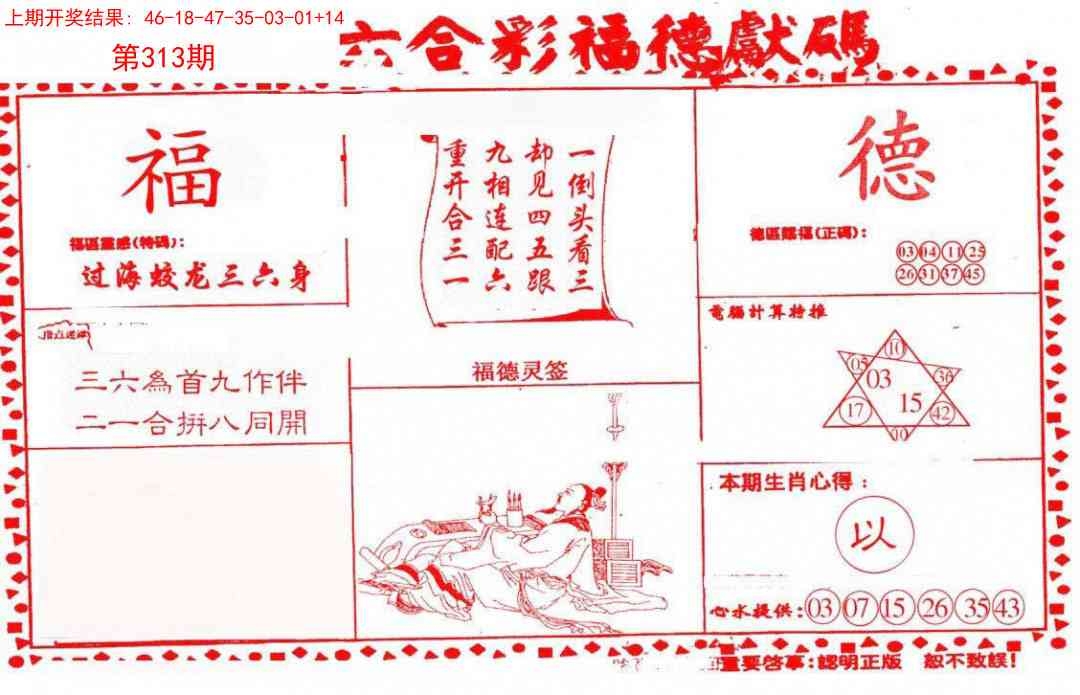 上期开奖结果: 46-18-47-35-03-01+14
第313期
六合彩福德獻碼
福
福區靈感(特碼):
过海蛟龙三六身
三六為首九作伴
二一合拼八同開
一倒头看三
却见四五跟
九相连配六
重开合三一
福德灵签
德
德區賜福(正碼):
03 04 11 25
26 31 37 45
電腦計算特推
10
05 36
03
17 15 42
10
本期生肖心得:
以
心水提供: 03 07 15 26 35 43
重要啓事:認明正版 恕不致誤!